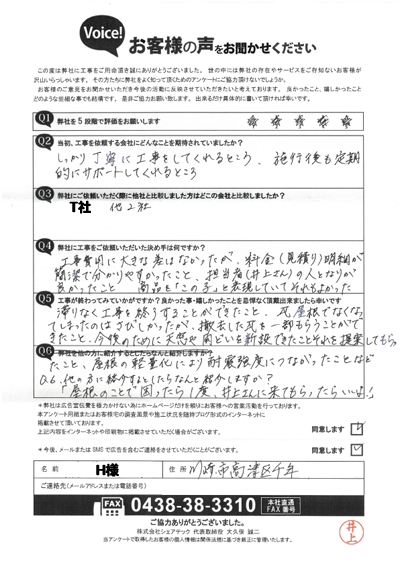 Voice!
お客様の声をお聞かせください
この度は弊社に工事をご用価頂き誠にありがとうございました。世の中には弊社の存在やサービスをご存知ないお客様が
沢山いらっしゃいます。その方たちに弊社をよく知って頂くためのアンケートにご協力頂けないでしょうか。
お客様のご意見をお聞かせいただき今後の活動に反映させていただきたいと考えております。良かったこと、嬉しかったこと
どのような些細な事でも結構です。是非ご協力お願い致します。出来るだけ具体的に書いて頂ければ幸いです。
Q1 弊社を5段階で評価をお願いします
Q2 当初、工事を依頼する会社にどんなことを期待されていましたか?
しっかり丁寧に工事をしてくれるところ、施行後も定期
的にサポートしてくれるところ
Q3 弊社にご依頼いただく際に他社と比較しました方はどこの会社と比較しましたか?
T社 他2社
Q4 弊社に工事をご依頼いただいた決め手は何ですか?
工事費用に大きな差はなかったが、料金(見積り)明細が
簡潔で分かりやすかったこと、担当者(井上さん)の人となりが
良かったこと 商品を「この子」と表現していてそれもよかった
Q5 工事が終わってみていかがですか?良かった事・嬉しかったことを忌憚なく頂戴出来ましたら幸いです
滞りなく工事を終うすることができたこと、瓦屋根でなくなっ
てしまったのはさびしかったが、撤去した瓦を一部もらうことがで
きたこと、今後のために天窓や雨どいを新設できたことそれを提案してもら
Q6 弊社を他の方に紹介するとしたらなんと紹介しますか?
たこと、屋根の軽量化により耐震強度につながったことなど
Q.6、他の方に紹介するとしたらなんと紹介しますか?
「屋根のことで困ったら1度、井上さんに来てもらったらいいよ!」
※弊社は広告宣伝費を極力かけない為にホームページだけを頼りにお客様への営業活動を行っております。
本アンケート用紙またはお客様宅の調査風景や施工状況を随時ブログ形式のインターネットに
掲載させて頂いております。
上記内容をインターネットや印刷物に掲載させていただく場合がございます。 同意します
*今後、メールまたはSMSで広告を含むご連絡をさせていただくことがございます。 同意します
名前 H様 住所 川崎市高津区千年
ご連絡先(メールアドレスまたは電話番号)
FAX 0438-38-3310 本社直通 FAX番号
ご協力ありがとうございました。
株式会社シェアテック 代表取締役 大久保 誠二
当アンケートで取得したお客様の個人情報は関係法規に基づき厳正に管理いたします。
井上